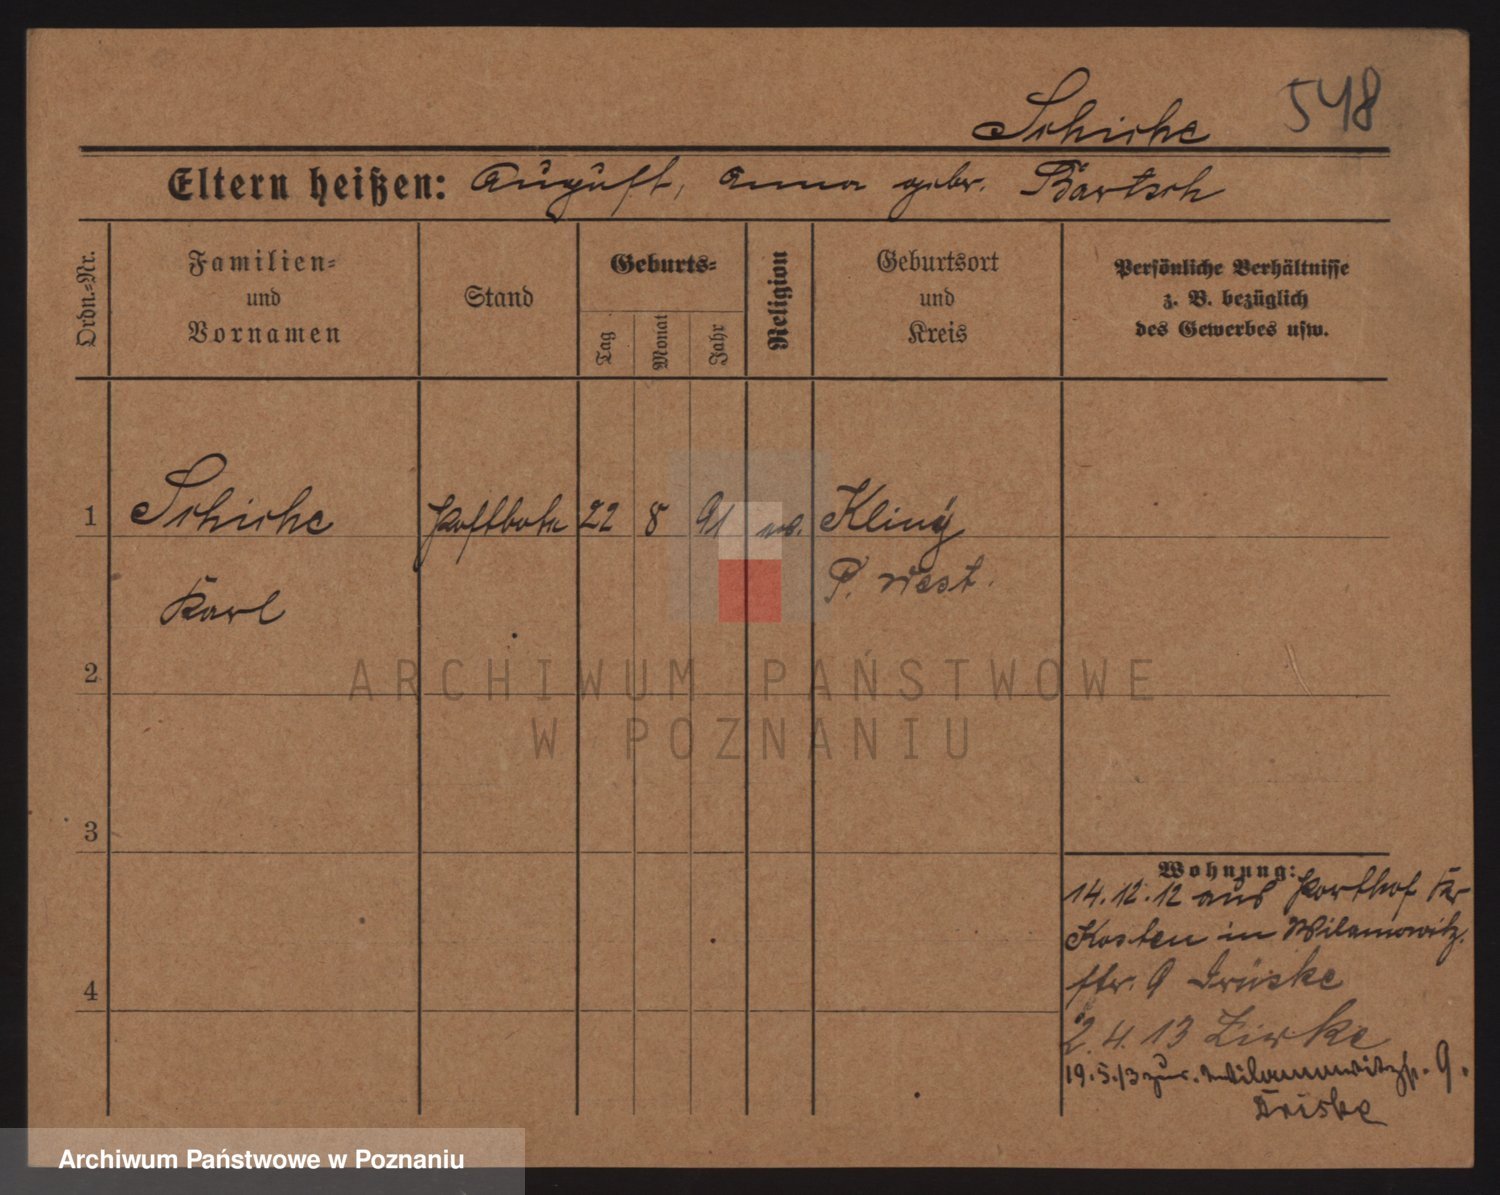 Schicke 548
Eltern heißen: August, Anna gebr. Bartsch
Ordn.=Nr.
Familien=
und
Vornamen
Stand
Geburts=
Tag
Monat
Jahr
Religion
Geburtsort
und
Kreis
Persönliche Verhältnisse
z. B. bezüglich
des Gewerbes usw.
1 Schicke Postbote 22 8 91 Kliny
Karl P. West.
2
3
4
Wohnung:
14.12.12 aus Kr
Kosten in Wilamowitz.
str. 9 Drüske
2.4.13 Zirke
19.5.13 zur. Wilamowitzstr. 9.
Driske
ARCHIWUM PAŃSTWOWE
W POZNANIU
Archiwum Państwowe w Poznaniu